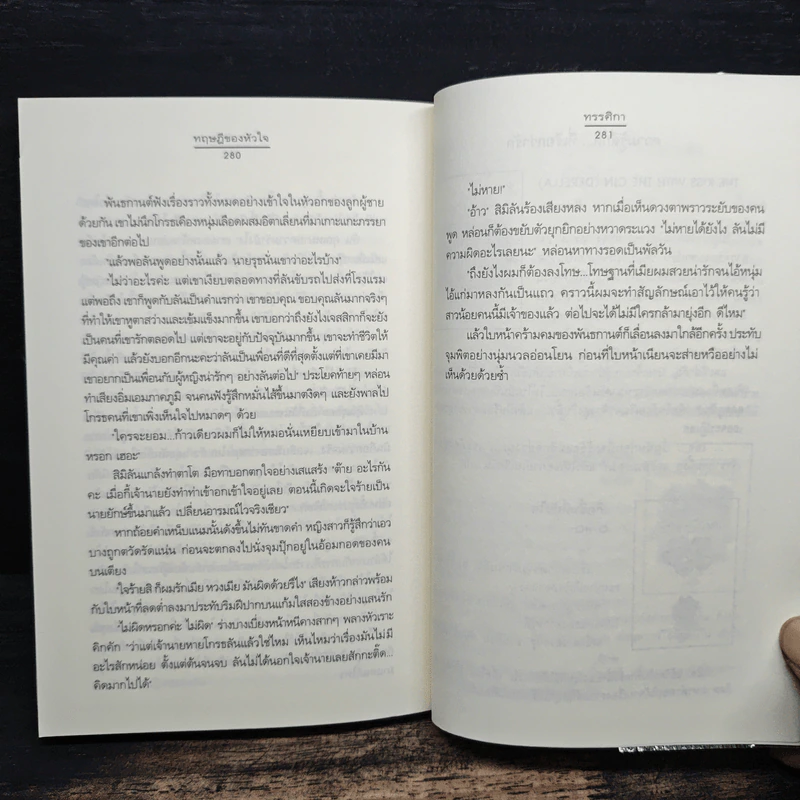 ทฤษฎีของหัวใจ
280
พันธกานต์ฟังเรื่องราวทั้งหมดอย่างเข้าใจในหัวอกของลูกผู้ชาย
ด้วยกัน เขาไม่นึกโกรธเคืองหนุ่มเลือดผสมอิตาเลี่ยนที่มาเกาะแกะภรรยา
ของเขาอีกต่อไป
"แล้วพอลันพูดอย่างนั้นแล้ว นายรุซนั่นเขาว่าอะไรบ้าง"
"ไม่ว่าอะไรค่ะ แต่เขาเงียบตลอดทางที่ลันขับรถไปส่งที่โรงแรม
แต่พอถึง เขาก็พูดกับลันเป็นคำแรกว่า เขาขอบคุณ ขอบคุณลันมากจริงๆ
ที่ทำให้เขาหูตาสว่างและเข้มแข็งมากขึ้น เขาบอกว่าถึงยังไงเจสสิกาก็จะยัง
เป็นคนที่เขารักตลอดไป แต่เขาจะอยู่กับปัจจุบันมากขึ้น เขาจะทำชีวิตให้
มีคุณค่า แล้วยังบอกอีกนะคะว่าลันเป็นเพื่อนที่ดีที่สุดตั้งแต่ที่เขาเคยมีมา
เขาอยากเป็นเพื่อนกับผู้หญิงน่ารักๆ อย่างลันต่อไป" ประโยคท้ายๆ หล่อน
ทำเสียงอิ่มเอมภาคภูมิ จนคนฟังรู้สึกหมั่นไส้ขึ้นมาตงิดๆ และยังพาลไป
โกรธคนที่เขาเพิ่งเห็นใจไปหมาดๆ ด้วย
"ใครจะยอม...ก้าวเดียวผมก็ไม่ให้หมอนั่นเหยียบเข้ามาในบ้าน
หรอก เฮอะ"
สิมิลันแกล้งทำตาโต มือทาบอกตกใจอย่างเสแสร้ง "ต๊าย อะไรกัน
คะ เมื่อกี้เจ้านายยังทำท่าเข้าอกเข้าใจอยู่เลย ตอนนี้เกิดจะใจร้ายเป็น
นายยักษ์ขึ้นมาแล้ว เปลี่ยนอารมณ์ไวจริงเชียว"
หากถ้อยคำเหน็บแนมนั้นดังขึ้นไม่ทันขาดคำ หญิงสาวก็รู้สึกว่าเอว
บางถูกตวัดรัดแน่น ก่อนจะตกลงไปนั่งจุมปุ๊กอยู่ในอ้อมกอดของคน
บนเตียง
"ใจร้ายสิ ก็ผมรักเมีย หวงเมีย มันผิดด้วยรึไง" เสียงห้าวกล่าวพร้อม
กับใบหน้าที่ลดต่ำลงมาประทับริมฝีปากบนแก้มใสสองข้างอย่างแสนรัก
"ไม่ผิดหรอกค่ะ ไม่ผิด" ร่างบางเบี่ยงหน้าหนีคางสากๆ พลางหัวเราะ
คิกคัก "ว่าแต่เจ้านายหายโกรธลันแล้วใช่ไหม เห็นไหมว่าเรื่องมันไม่มี
อะไรสักหน่อย ตั้งแต่ต้นจนจบ ลันไม่ได้นอกใจเจ้านายเลยสักกะติ๊ด...
คิดมากไปได้"
ทรรศิกา
281
"ไม่หาย!"
"อ้าว" สิมิลันร้องเสียงหลง หากเมื่อเห็นดวงตาพราวระยับของคน
พูด หล่อนก็ต้องขยับตัวยุกยิกอย่างหวาดระแวง "ไม่หายได้ยังไง ลันไม่มี
ความผิดอะไรเลยนะ" หล่อนหาทางรอดเป็นพัลวัน
"ถึงยังไงผมก็ต้องลงโทษ...โทษฐานที่เมียผมสวยน่ารักจนไอ้หนุ่ม
ไอ้แก่มาหลงกันเป็นแถว คราวนี้ผมจะทำสัญลักษณ์เอาไว้ให้คนรู้ว่า
สาวน้อยคนนี้มีเจ้าของแล้ว ต่อไปจะได้ไม่มีใครกล้ามายุ่งอีก ดีไหม"
แล้วใบหน้าคร้ามคมของพันธกานต์ก็เลื่อนลงมาใกล้อีกครั้ง ประทับ
จุมพิตอย่างนุ่มนวลอ่อนโยน ก่อนที่ใบหน้าเนียนจะส่ายหวืออย่างไม่
เห็นด้วยด้วยซ้ำ